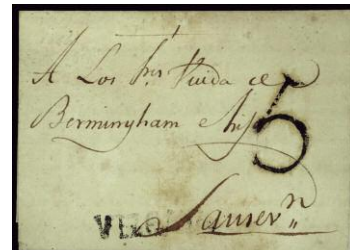 A Los Srs Viuda de
Bermingham e hijo
5
Sanser.n